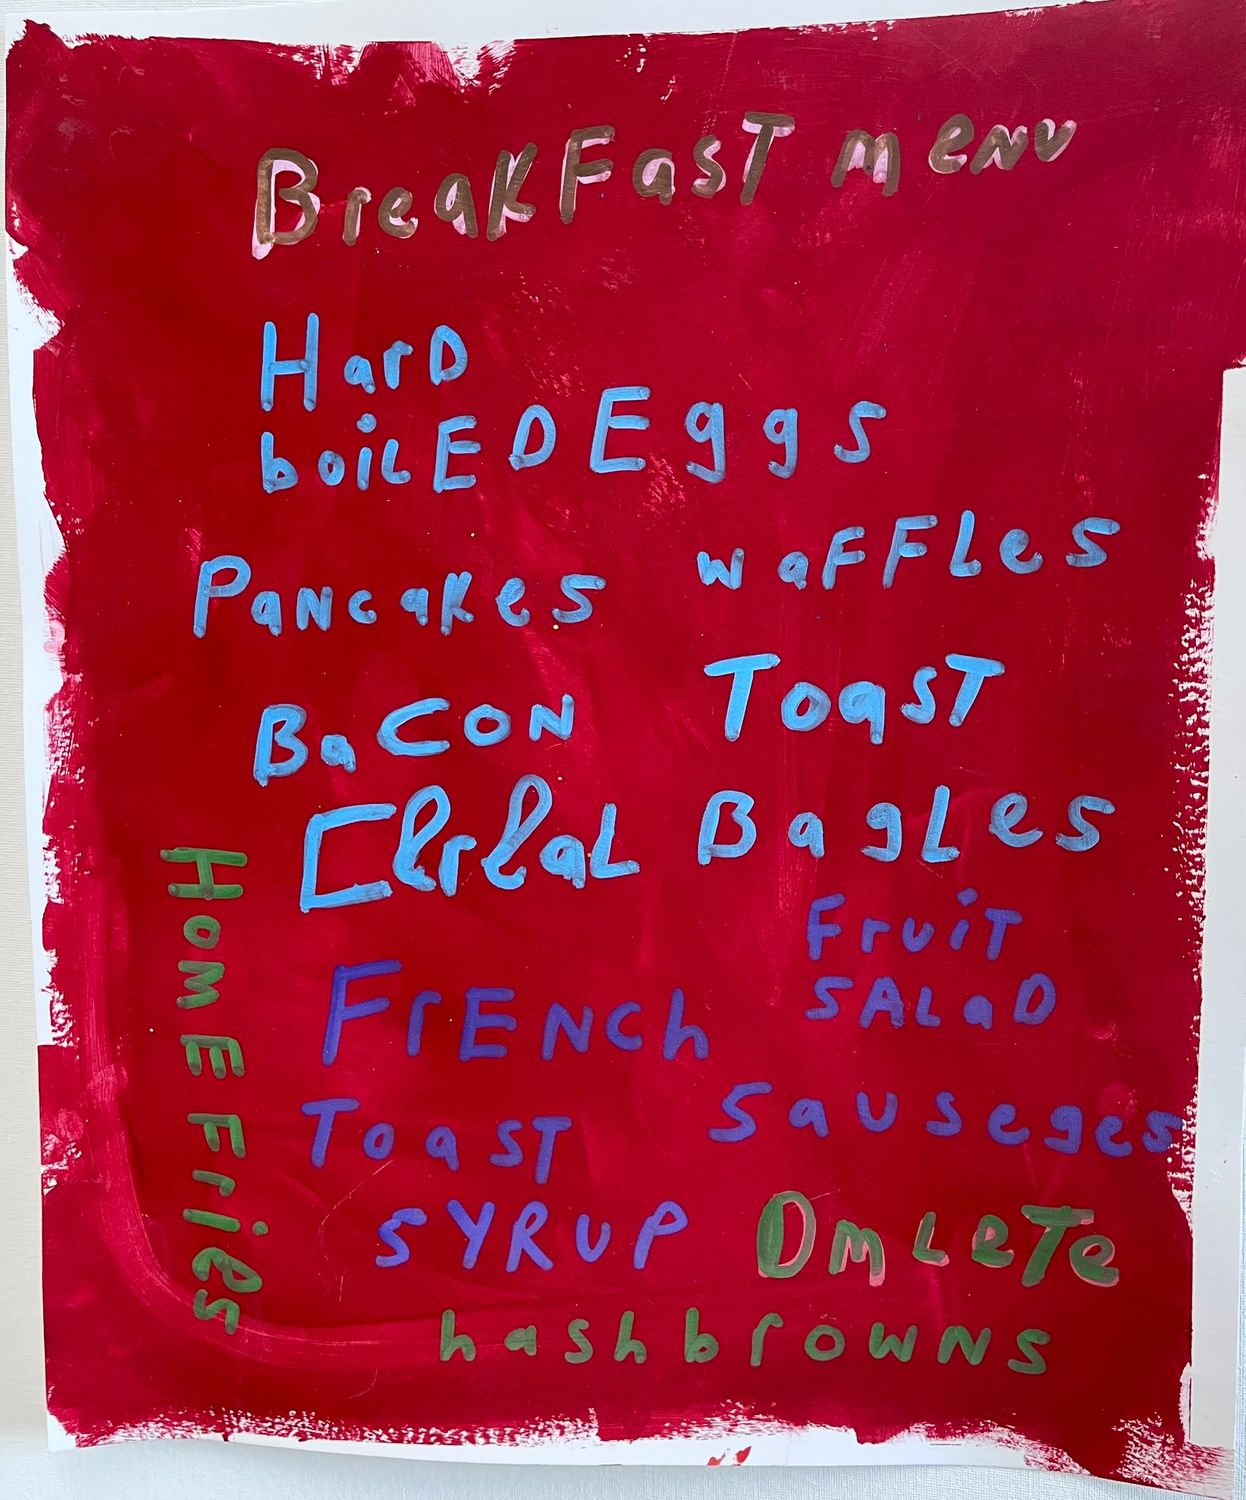 BreakFasT menu
HarD
boiLED Eggs
PaNcaKes waFFLes
BaCoN ToasT
CereaL BagLes
HoME Fries
FruiT
SALaD
FrENch
ToasT Sauseges
SYRUP OmLeTe
hashbrowNs